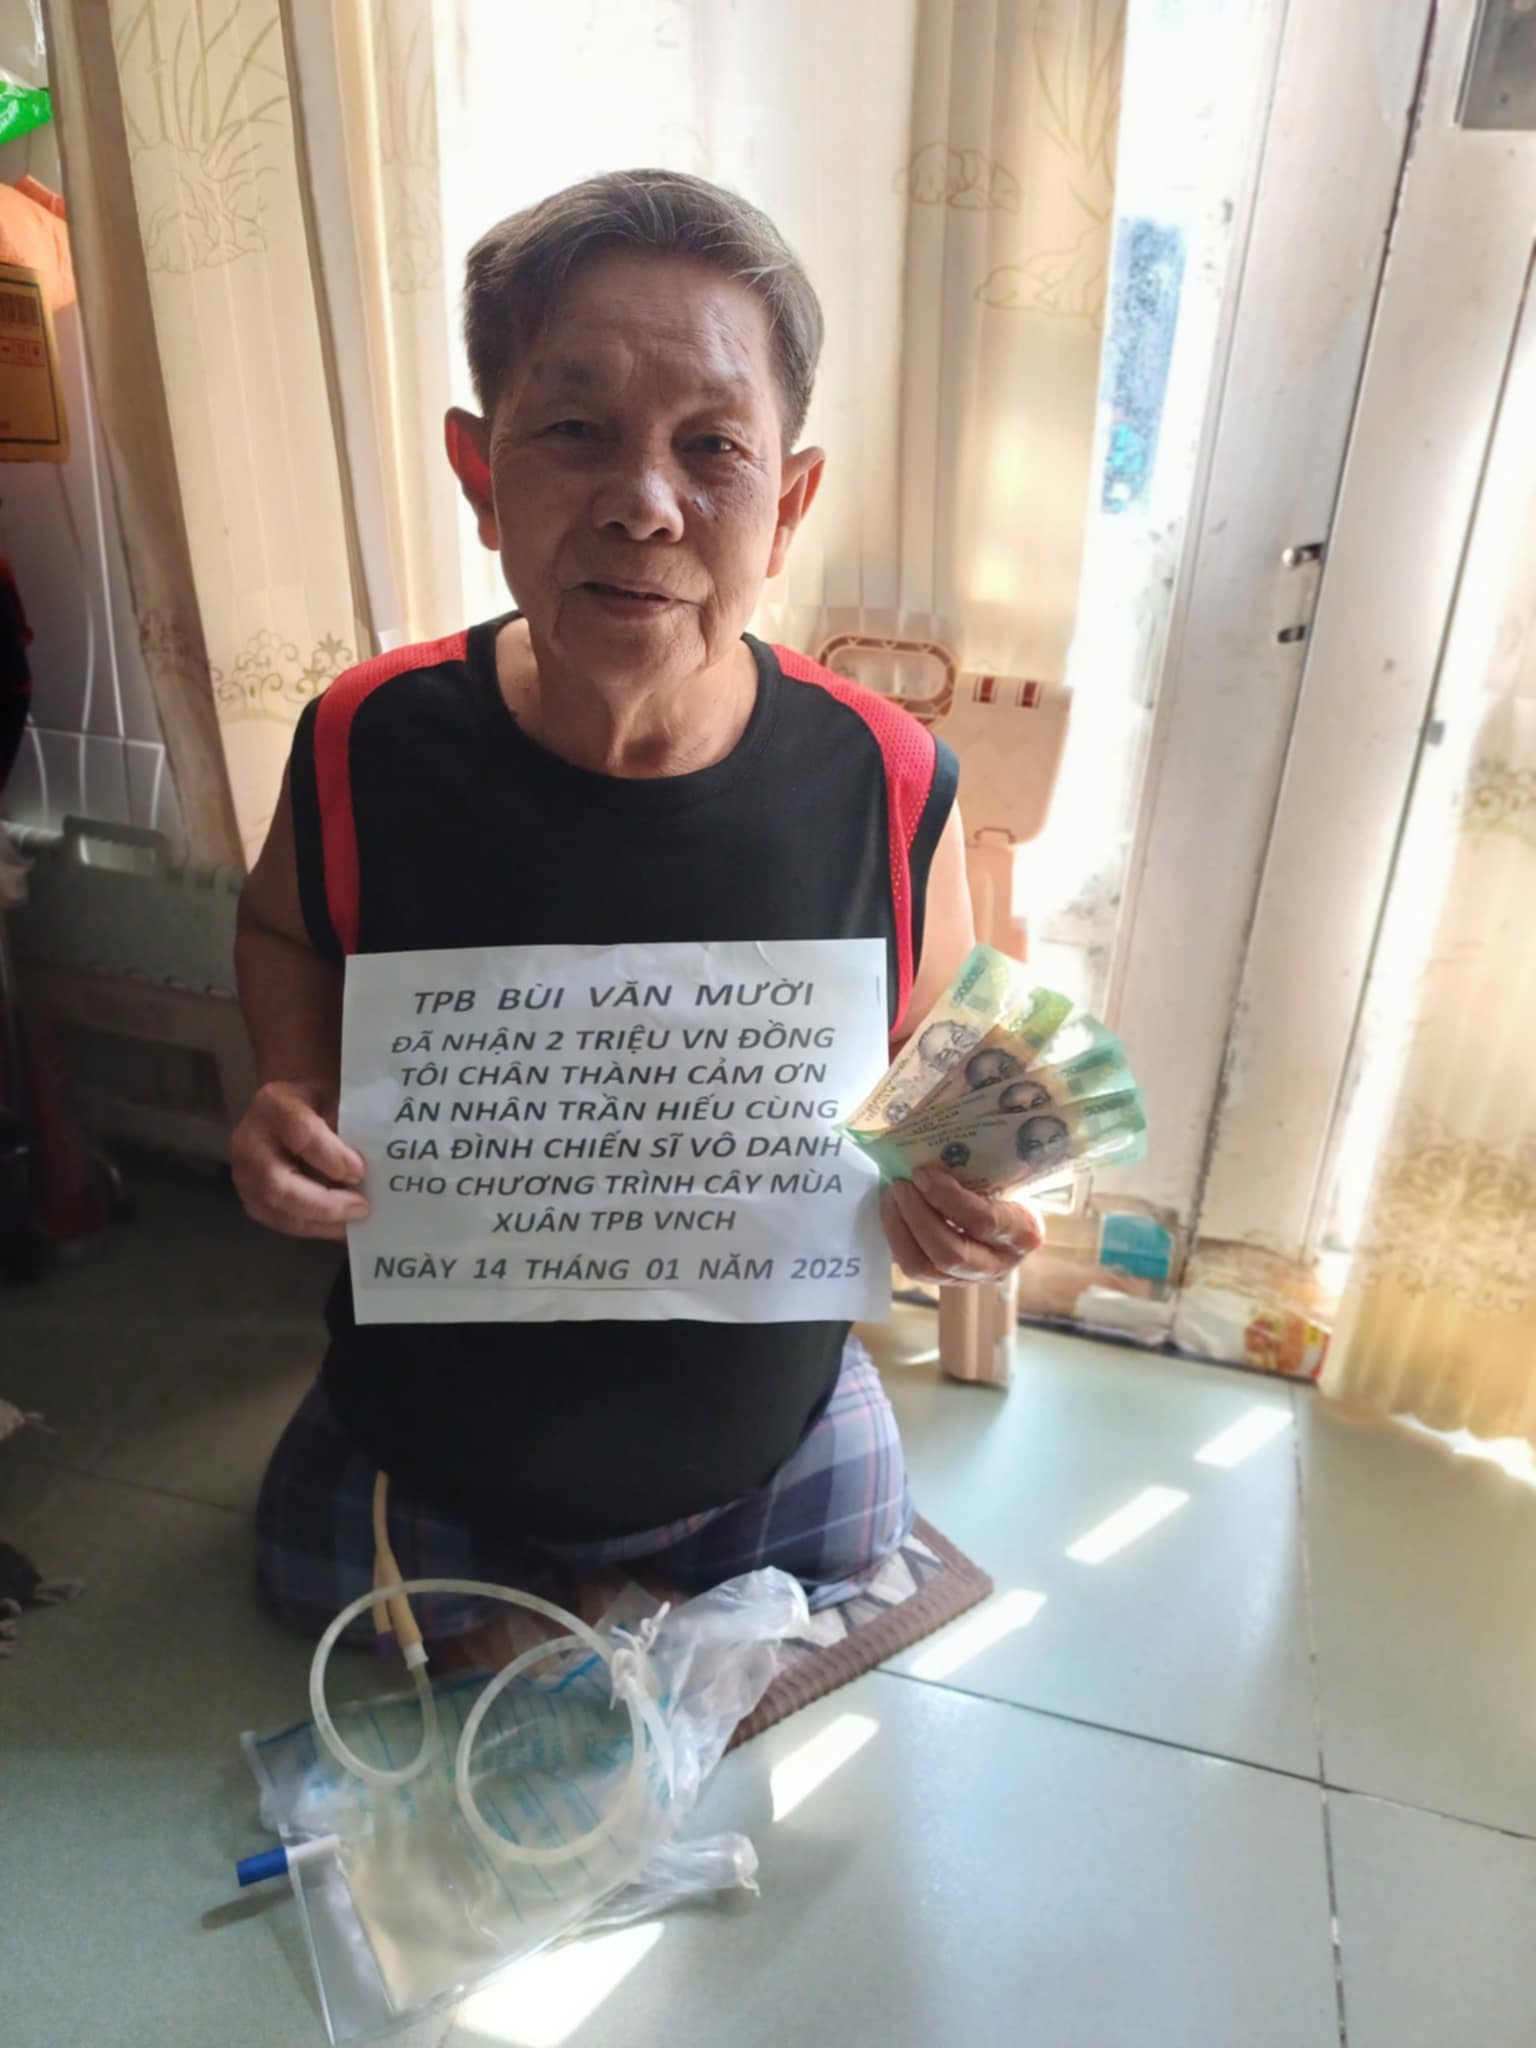 TPB BÙI VĂN MƯỜI
ĐÃ NHẬN 2 TRIỆU VN ĐỒNG
TÔI CHÂN THÀNH CẢM ƠN
ÂN NHÂN TRẦN HIẾU CÙNG
GIA ĐÌNH CHIẾN SĨ VÔ DANH
CHO CHƯƠNG TRÌNH CÂY MÙA
XUÂN TPB VNCH
NGÀY 14 THÁNG 01 NĂM 2025